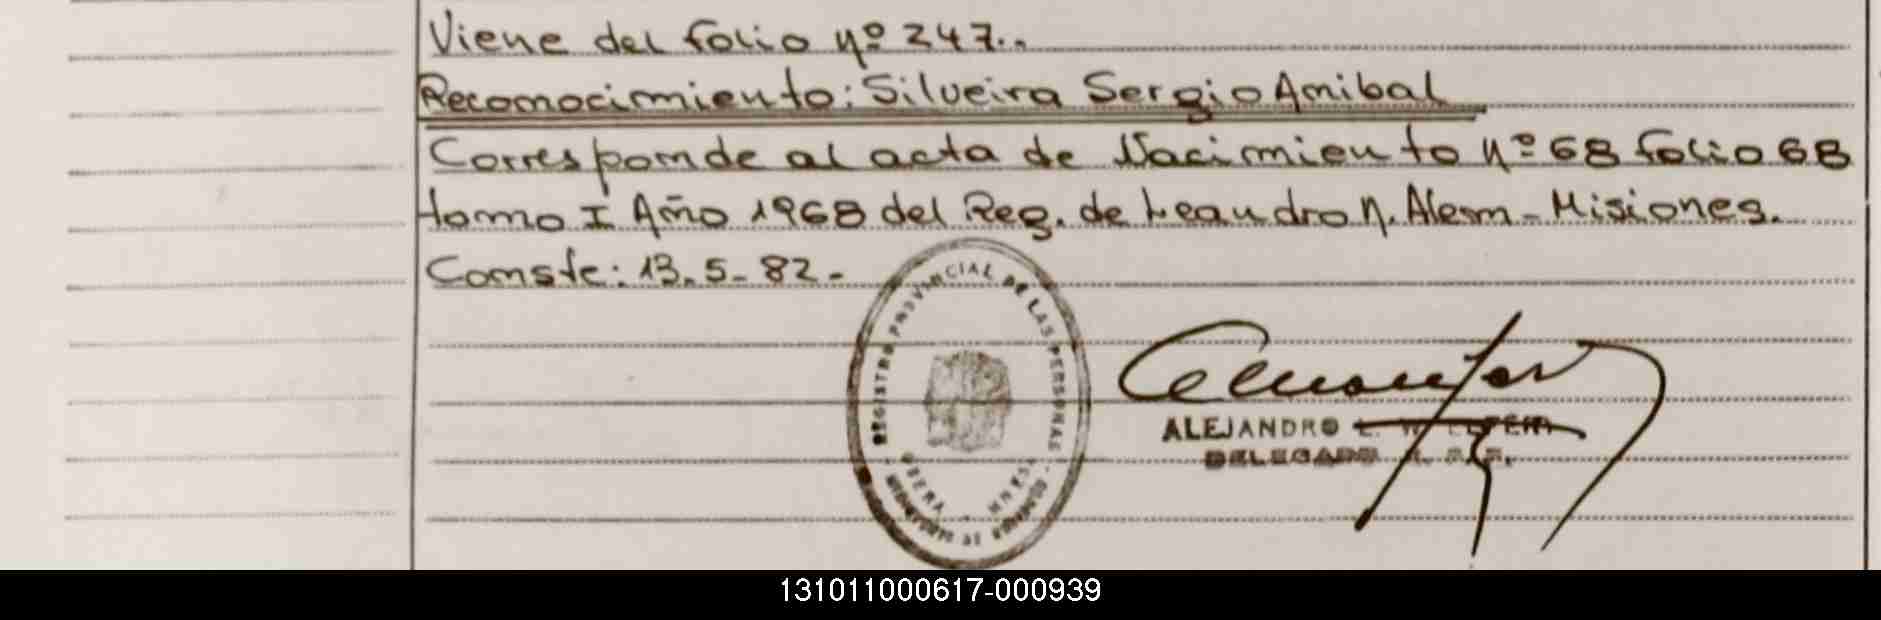 Viene del folio nº 247..
Reconocimiento: Silveira Sergio Anibal
Corresponde al acta de Nacimiento nº 68 folio 68
tomo I Año 1968 del Reg. de Leandro N. Alem - Misiones.
Conste: 13.5-82.-
REGISTRO PROVINCIAL DE LAS PERSONAS
OBERA - MNES.
ALEJANDRO L.
DELEGADO
131011000617-000939